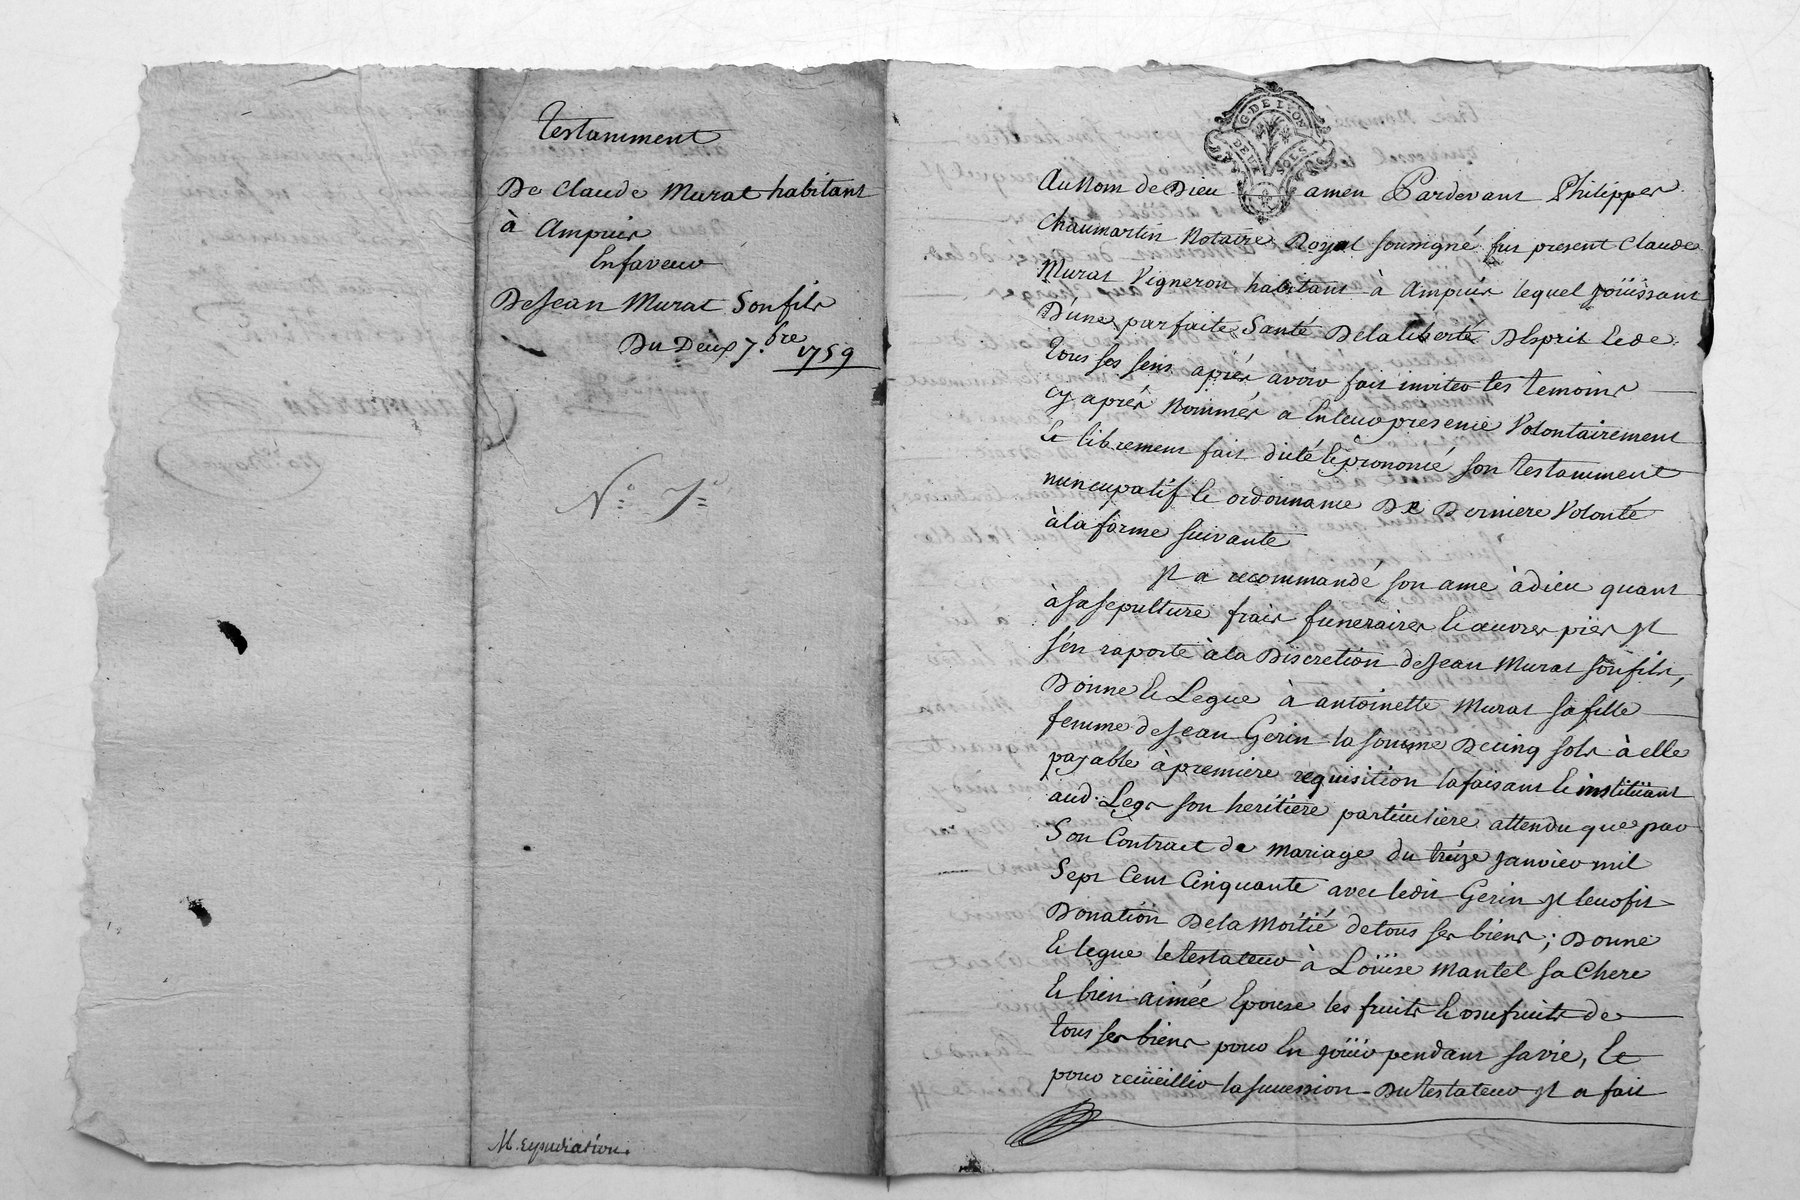 Testamment
De Claude Murat habitant
à Ampuis
En faveur
De Jean Murat Son fils
Du Deux 7.bre 1759
N.o 7.o
M. Expédiation.
G. DE LYON
DEUX SOLS
Au Nom de Dieu amen Pardevant Philippes
Chaumartin Notaire Royal soussigné fut present Claude
Murat Vigneron habitant à Ampuis lequel joüissant
D'une parfaite Santé De la liberté D'Esprit Et de
tous ses sens aprés avoir fait inviter les temoins
cy aprés Nommés a En leur presence Volontairement
Et librement fait dicté Et prononcé son testamment
nuncupatif Et ordonnance De Derniere Volonté
à la forme suivante
Il a recommandé son ame à dieu quant
à sa sepulture frais funeraires Et œuvres pies Il
s'en raporte à la Discretion de Jean Murat son fils,
Donne Et Legue à antoinette Murat sa fille
femme de Jean Gerin la somme De cinq sols à elle
payable à premiere requisition la faisant Et instituant
aud. Legs son heritiere particuliere attendu que par
Son Contract de mariage du treize janvier mil
Sept Cent Cinquante avec ledit Gerin Il leur fit
Donation De la Moitié de tous ses biens; Donne
Et legue le testateur à Loüise Mantel sa Chere
Et bien-aimée Epouse les fruits Et usufruits de
tous ses biens pour En joüir pendant sa vie, Et
pour recüeillir la succession Du testateur Il a fait